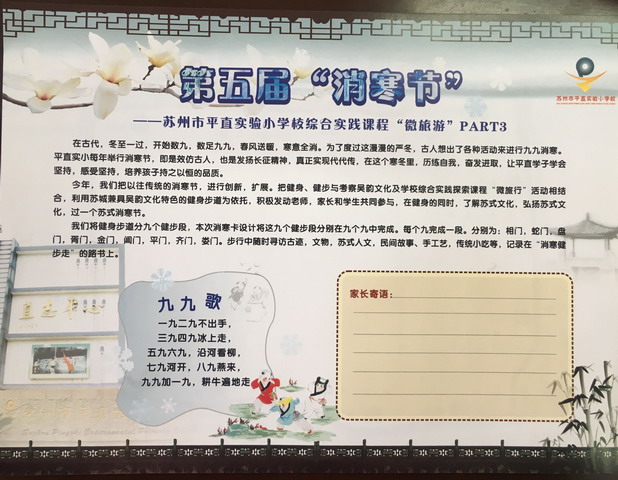 第五届“消寒节”
苏州市平直实验小学校
——苏州市平直实验小学校综合实践课程“微旅游”PART3
在古代，冬至一过，开始数九，数足九九，春风送暖，寒意全消。为了度过这漫漫的严冬，古人想出了各种活动来进行九九消寒。
平直实小每年举行消寒节，即是效仿古人，也是发扬长征精神，真正实现代代传，在这个寒冬里，历练自我，奋发进取，让平直学子学会
坚持，感受坚持，培养孩子持之以恒的品质。
今年，我们把以往传统的消寒节，进行创新，扩展。把健身、健步与考察吴韵文化及学校综合实践探索课程“微旅行”活动相结
合，利用苏城兼具吴韵文化特色的健身步道为依托，积极发动老师，家长和学生共同参与，在健身的同时，了解苏式文化，弘扬苏式文
化，过一个苏式消寒节。
我们将健身步道分九个健步段，本次消寒卡设计将这九个健步段分别在九个九中完成。每个九完成一段。分别为：相门，蛇门，盘
门，胥门，金门，阊门，平门，齐门，娄门。步行中随时寻访古迹，文物，苏式人文，民间故事、手工艺，传统小吃等，记录在“消寒健
步走”的路书上。
九九歌
一九二九不出手，
三九四九冰上走，
五九六九，沿河看柳，
七九河开，八九燕来，
九九加一九，耕牛遍地走
家长寄语：